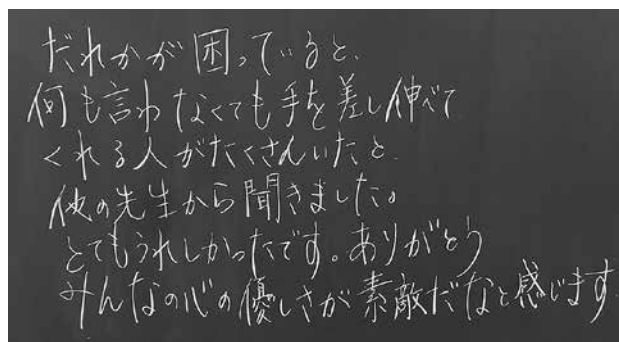 だれかが困っていると、
何も言わなくても手を差し伸べて
くれる人がたくさんいたと、
他の先生から聞きました。
とてもうれしかったです。ありがとう
みんなの心の優しさが素敵だなと感じます